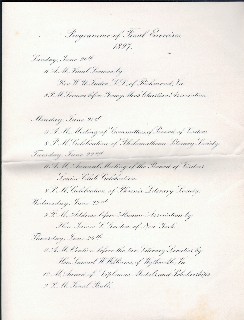 Programme of Final Exercises
1897.
Sunday, June 20th
11 A.M. Final Sermon by
Rev. W. W. D.D. of Richmond, Va.
8 P.M. Sermon before Young Men's Christian Association
Monday June 21st
11 A.M. Meeting of Committees of Board of Visitors
8 P.M. Celebration of Philomathean Literary Society
Tuesday June 22nd
11 A.M. Annual Meeting of the Board of Visitors
Senior Class Celebration
8 P.M. Celebration of Literary Society.
Wednesday, June 23rd
8 P.M. Address before Alumni Association by
Hon. of New York
Thursday, June 24th
11 A.M. Oration before the two Literary Societies by
Hon. Samuel W. Williams of Wytheville, Va.
12 M. Award of Diplomas, Medals and Scholarships
9 P.M. Final Ball.